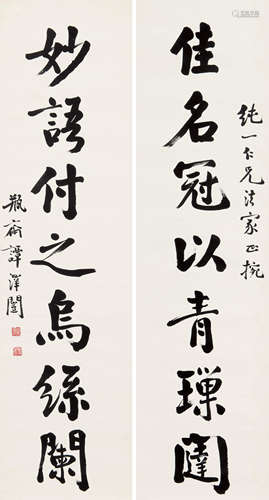 純一仁兄法家正捥
佳名冠以青璅闥
妙語付之烏絲闌
瓶齋譚澤闓